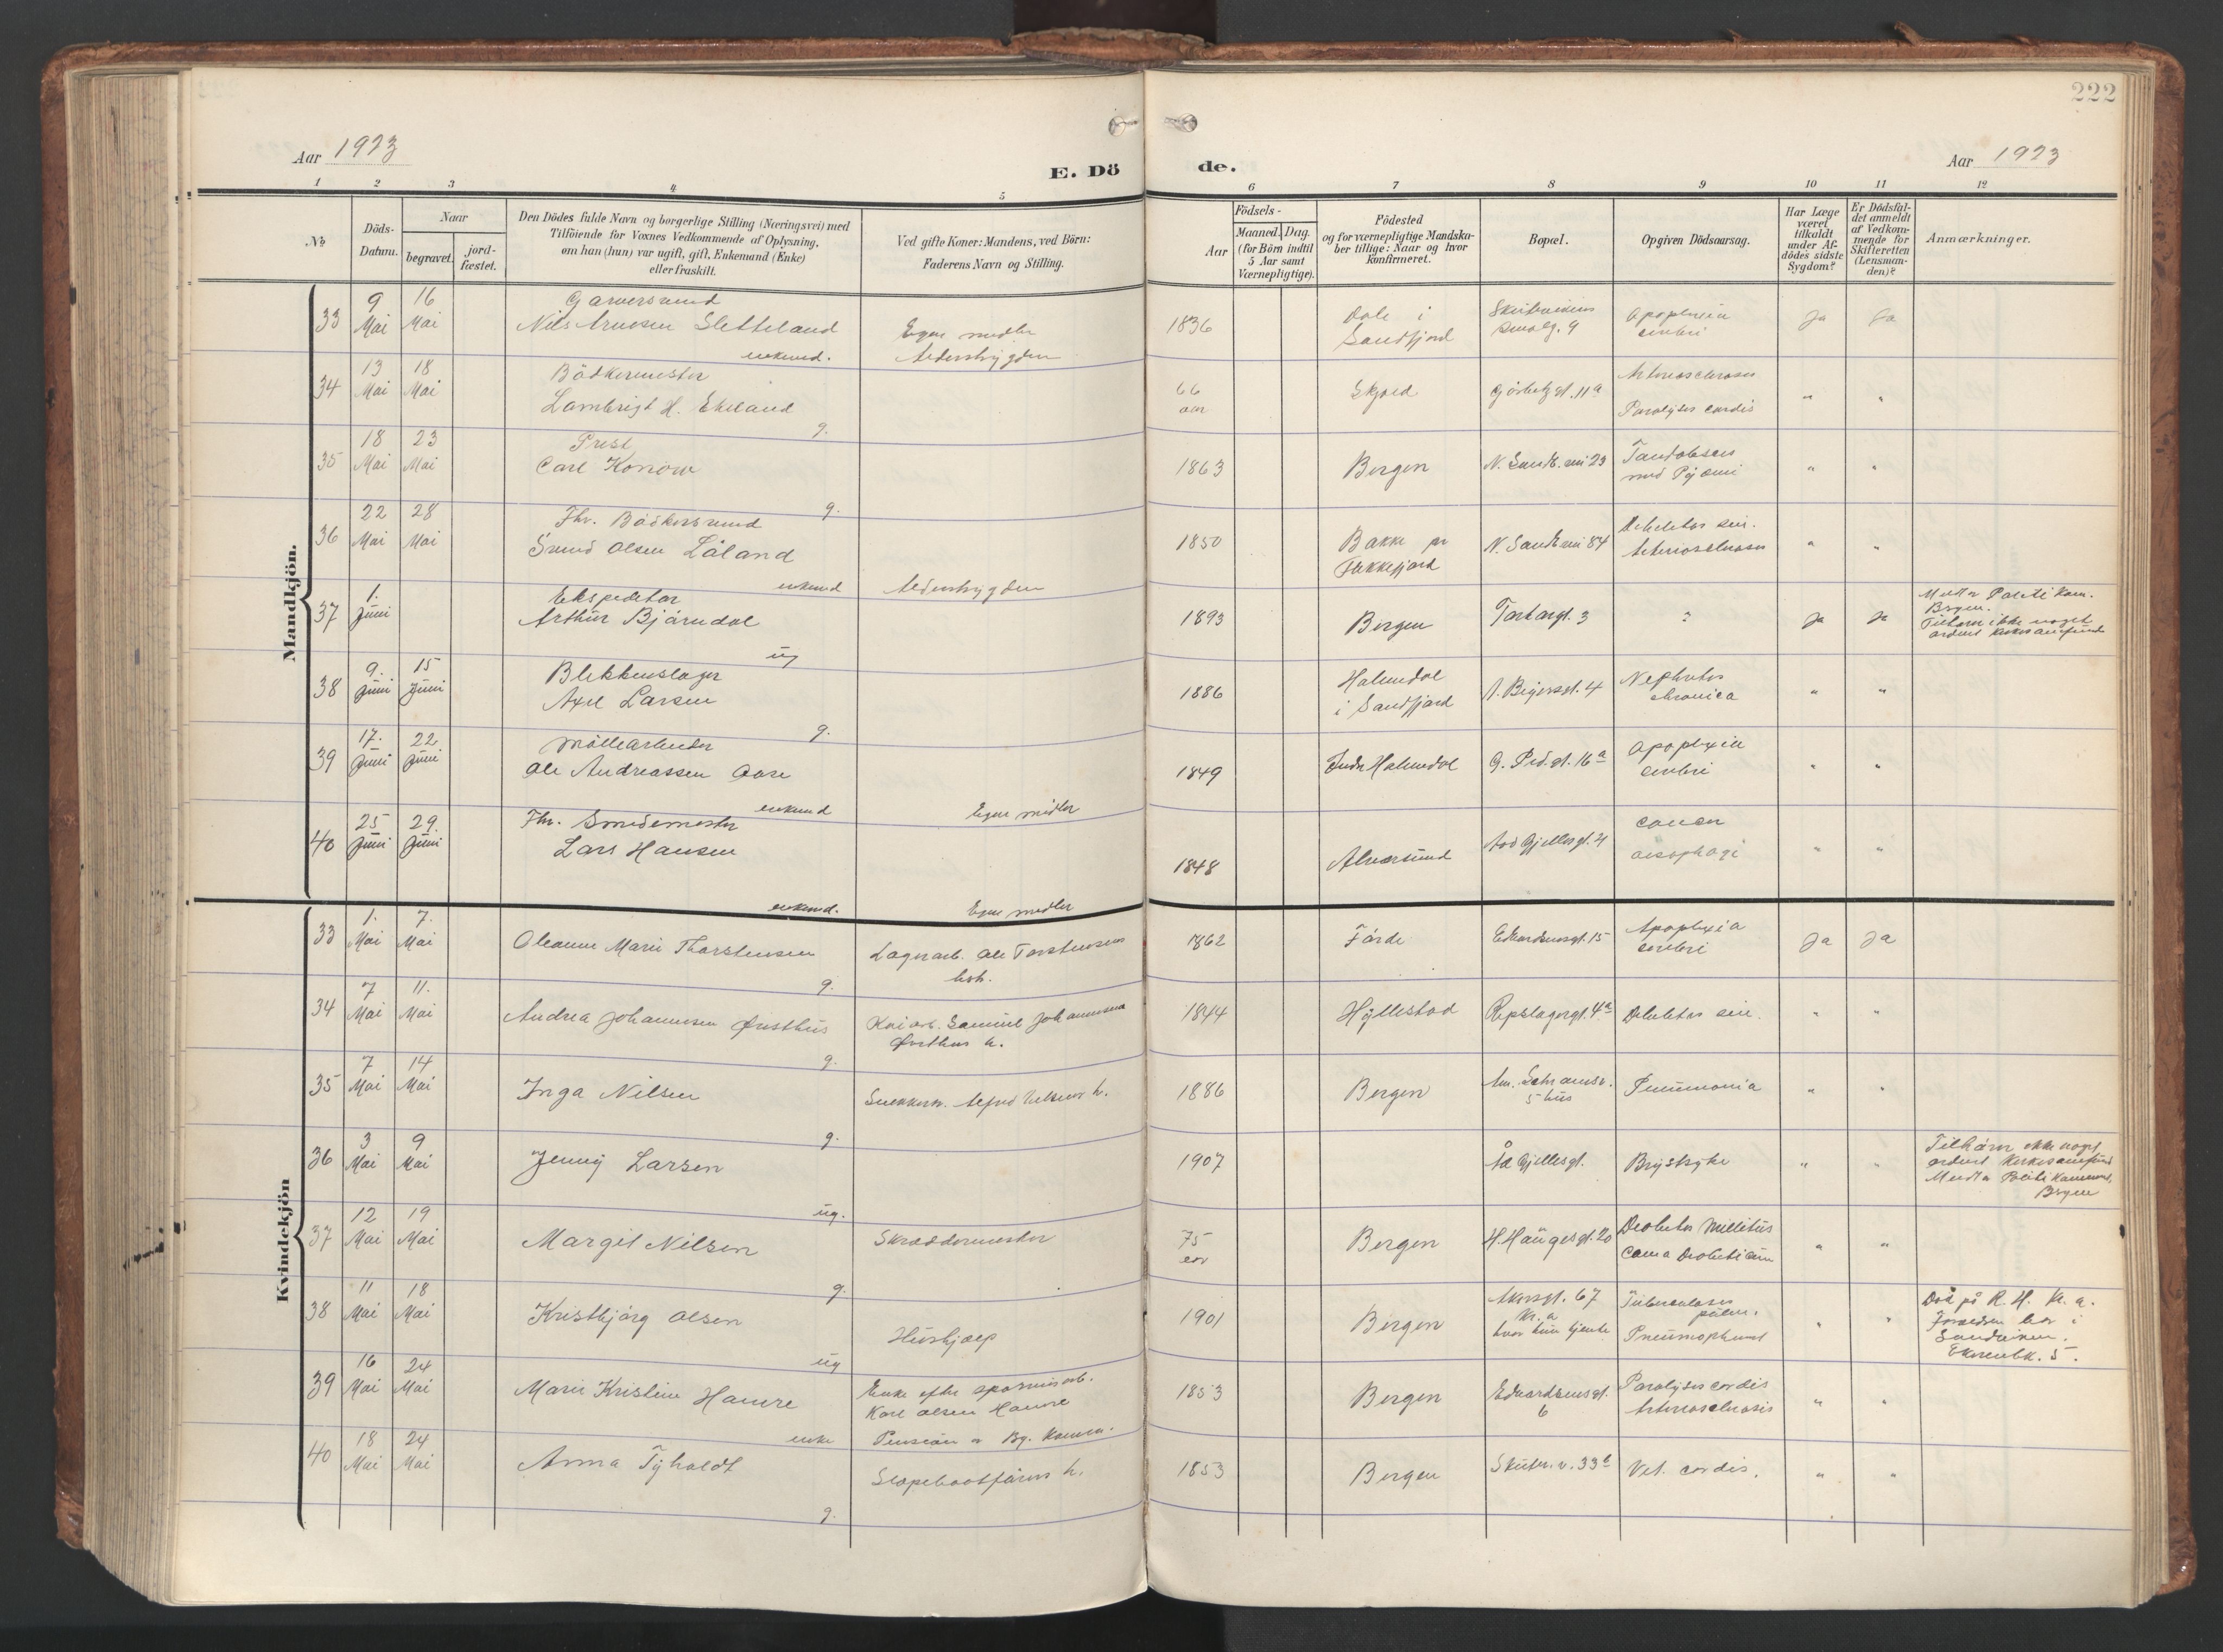 222
Aar 1923
E. Dö de.
Aar 1923
1 2 3 4 5 6 7 8 9 10 11 12
№
Döds-
Datum.
Naar
begravet.
jord-
fæstet.
Den Dödes fulde Navn og borgerlige Stilling (Næringsvei) med
Tilföiende for Voxnes Vedkommende af Oplysning,
om han (hun) var ugift, gift, Enkemand (Enke)
eller fraskilt.
Ved gifte Koner: Mandens, ved Börn:
Faderens Navn og Stilling.
Födsels-
Aar
Maaned. Dag.
(for Börn indtil
5 Aar samt
Værnepligtige).
Födested
og for værnepligtige Mandska-
ber tillige: Naar og hvor
konfirmeret.
Bopæl.
Opgiven Dödsaarsag.
Har Læge
været
tilkaldt
under Af-
dödes sidste
Sygdom?
Er Dödsfal-
det anmeldt
af Vedkom-
mende for
Skifteretten
(Lensman-
den)?
Anmærkninger.
Mandkjön.
33 9 Mai 16 Mai
Garversvend
Nils Arnesen Sletteland
enkemd.
Egne midler
Alderstrygden
1836
Dale i
Sandfjord
9
Apoplexia
cerebri
Ja Ja
34 13 Mai 18 Mai
Bödkermester
Lambrigt H. Ekeland
g.
66
aar
Skjold
11a
Arteriosclerosis
Paralysis cordis
" "
35 18 Mai 23 Mai
Prest
Carl Konow
g.
1863
Bergen
N. Sandk.vei 23
med Pyæmi
" "
36 22 Mai 28 Mai
Fhv. Bödkersvend
Svend Olsen Låland
enkemd
Alderstrygden
1850
Bakke pr
Flekkefjord
N. Sandk.vei 84
Debilitas sen.
Arteriosclerosis
" "
37 1. Juni
Ekspeditör
Arthur Bjørndal
ug
1893
Bergen
Torborgt. 3
?
Ja Ja
Meldt Politikam.
Bergen.
Tilhører ikke noget
ordnet kirkesamfund
38 9. Juni 15 Juni
Blikkenslager
Axel Larsen
g.
1886
Holmedal
i Sandfjord
4
Nephritis
chronica
" "
39 17. Juni 22 Juni
Möllearbeider
Ole Andreassen Aase
enkemd
Egne midler
1849
Indre Holmedal
16a
Apoplexia
cerebri
" "
40 25 Juni 29. Juni
Fhv. Smedemester
Lars Hansen
enkemd.
Egne midler
1848
Alversund
Aad Gjellesgt. 21
Cancer
oesophagi
" "
Kvindekjön
33 1. Mai 7. Mai
Oleanne Marie Thorstensen
g.
Lagerarb. Ole Torstensens
hst.
1862
Förde
Edvardsensgt. 15
Apoplexia
cerebri
Ja Ja
34 7 Mai 11. Mai
Andrea Johannesen Østhus
g.
Kaiarb. Samuel Johannesen
Østhus h.
1844
Hyllestad
Repslagergt. 4a
Debilitas sen.
" "
35 7 Mai 14 Mai
Inga Nilsen
g.
Snekkerm. Alfred Nilsens h.
1886
Bergen
Am. Schramsv.
5 hus
Pneumonia
" "
36 3 Mai 9 Mai
Jenny Larsen
ug.
1907
Åd Gjellesgt.
Brystsyke
" "
Tilhører ikke noget
ordnet kirkesamfund
Meldt Politikammer,
Bergen
37 12 Mai 19 Mai
Margit Nilsen
g.
Skræddermester
75
aar
Bergen
H. Haugesgt. 20
Diabetes Mellitus
Coma Diabeticum
" "
38 11 Mai 18 Mai
Kristbjörg Olsen
ug
Hushjælp
1901
Bergen
Akersgt. 67
Kr.a
hvor hun tjente
Tuberculosis
pulm.
" "
Död på R. H. Kr.a.
Forældre bor i
Sandviken.
Ekrenbk. 5.
39 16 Mai 24 Mai
Marie Kristine Hamre
enke
Enke efter sporveisarb.
Karl Olsen Hamre
Pension av Bg. Komm.
1853
Bergen
Edvardsensgt.
6
Paralysis cordis
Arteriosclerosis
" "
40 18 Mai 24 Mai
Anna Tyholdt
g.
Slæpebaatförers h.
1853
Bergen
Skutev. v. 33b
Vit. cordis.
" "